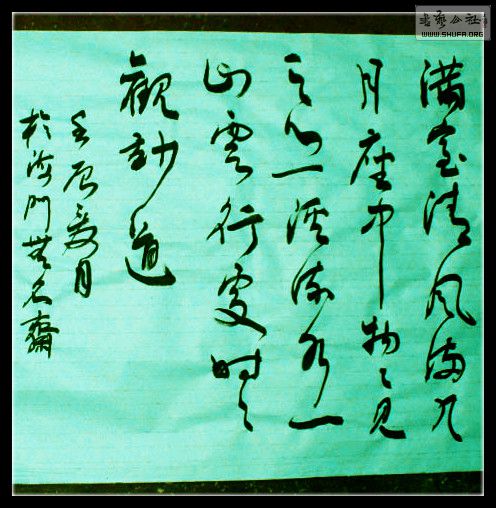 書藝公社
WWW.SHUFA.ORG
滿室清風滿几
月座中物々見
天心一溪流水一
山雲行處時々
觀妙道
壬辰夏月
於海門無名齋